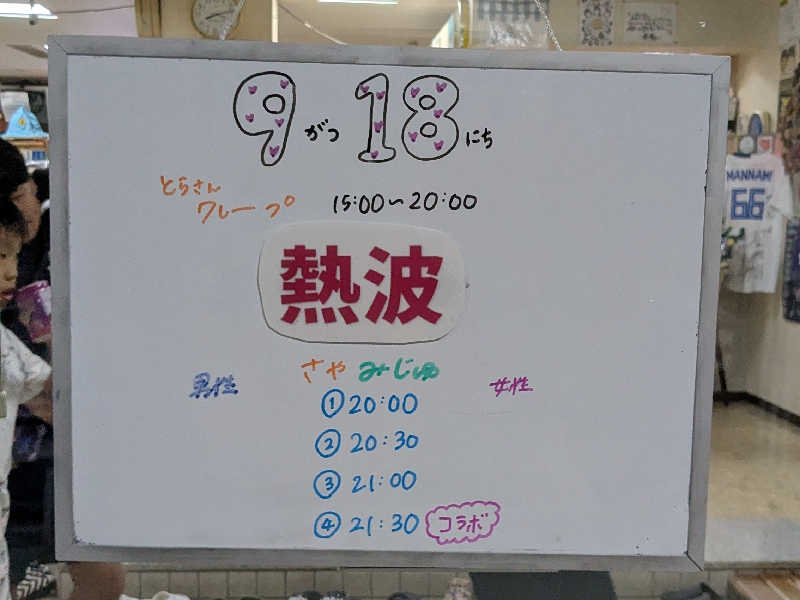 9がつ18にち
とらさん
クレープ 15:00～20:00
熱波
さや みじゅ
男性 女性
①20:00
②20:30
③21:00
④21:30 コラボ
MANNAMI
66